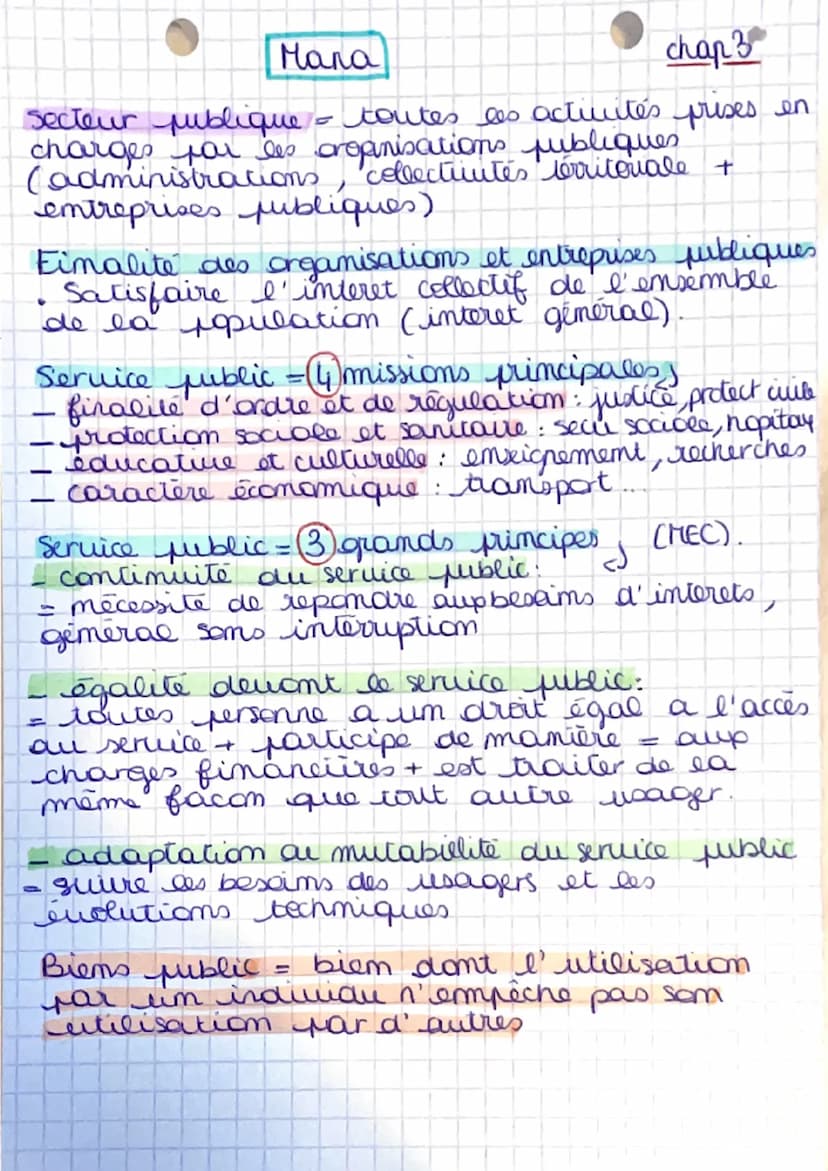 Mana
chap 3
secteur publique = toutes les activités prises en
charges par les organisations publiques
(administrations, collectivités térritoriale +
entreprises publiques)
Finalité des organisations et entreprises publiques
• Satisfaire l'interet collectif de l'ensemble
de la population (interet général).
Service public = 4 missions principales
- finalité d'ordre et de régulation : justice, protect civile
- protection sociale et sanitaire : secu sociale, hopitaux
- éducative et culturelle : enseignement, recherches
- caractère économique : transport...
Service public = 3 grands principes (MEC).
- continuité du service public :
= nécessité de repondre aux besoins d'interets,
général sans interruption
- égalité devant le service public :
= toutes personne a un droit égal a l'accès
au service + participe de manière = aux
charges financières + est traiter de la
même facon que tout autre usager.
- adaptation ou mutabilité du service public
= suivre les besoins des usagers et les
évolutions techniques
Biens public = bien dont l'utilisation
par un individu n'empêche pas son
utilisation par d'autres